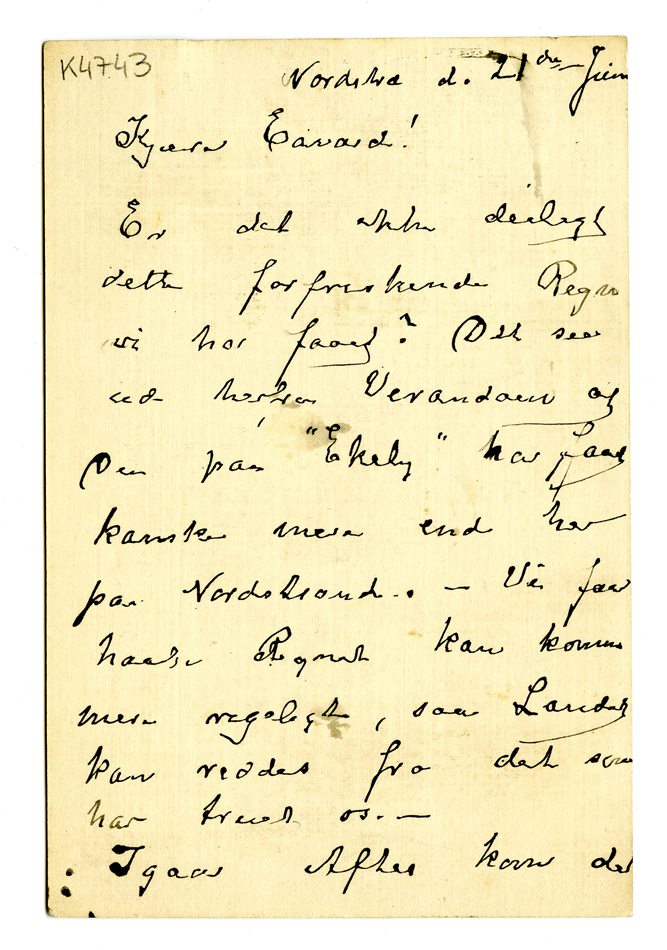 K4743
Nordstra d. 21de Juni
Kjære Edvard!
Er det ikke deiligt
dette forfriskende Regn
vi har faaet? Det sees
ud herfra Verandaen og
Du paa "Ekely" har faaet
kanske mere end her
paa Nordstrand. – Vi faar
haabe Regnet kan komme
mere regelegt, saa Landet
kan reddes fra det som
har truet os. –
Igaar Aftes kom det